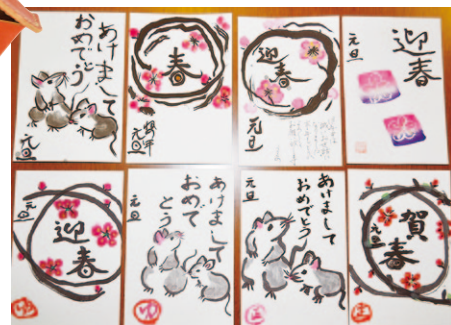 あけまして
おめでとう
元旦
春
新年
元旦
迎
春
元旦
迎春
元旦
迎
春
元旦
あけまして
おめで
とう
元旦
あけまして
おめでとう
元旦
賀
春
元旦